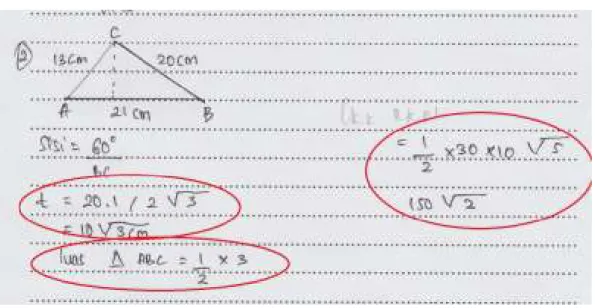 2)
C
13cm 20cm
A 21 cm B
Sisi = 60°
BC
t = 20.1 / 2 √3
= 10√3cm
luas Δ ABC = 1/2 x 3
= 1/2 x 30 x 10 √5
150 √2